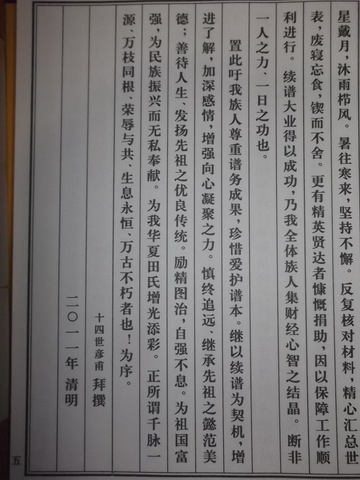 星戴月，沐雨栉风。暑往寒来，坚持不懈。反复核对材料，精心汇总世
表，废寝忘食，锲而不舍。更有精英贤达者慷慨捐助，因以保障工作顺
利进行。续谱大业得以成功，乃我全体族人集财经心智之结晶。断非
一人之力、一日之功也。
置此吁我族人尊重谱务成果，珍惜爱护谱本。继以续谱为契机，增
进了解，加深感情，增强向心凝聚之力。慎终追远、继承先祖之懿范美
德；善待人生、发扬先祖之优良传统。励精图治，自强不息。为祖国富
强，为民族振兴而无私奉献。为我华夏田氏增光添彩。正所谓千脉一
源、万枝同根、荣辱与共、生息永恒、万古不朽者也！为序。
十四世彦甫 拜撰
二〇一一年 清明
五